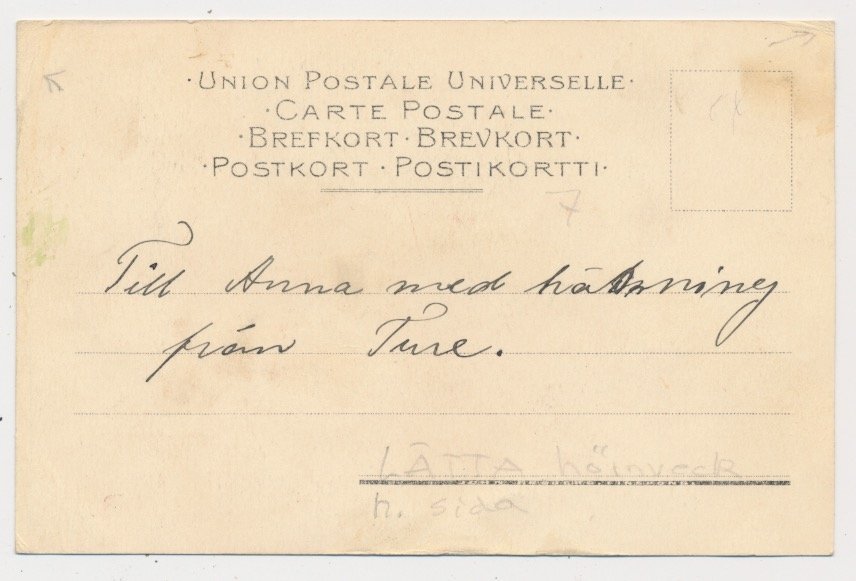 ·UNION POSTALE UNIVERSELLE·
·CARTE POSTALE·
·BREFKORT·BREVKORT·
·POSTKORT·POSTIKORTTI·
7
Till Anna med hälsning
från Ture.
LÄTTA hörnveck
h. sida